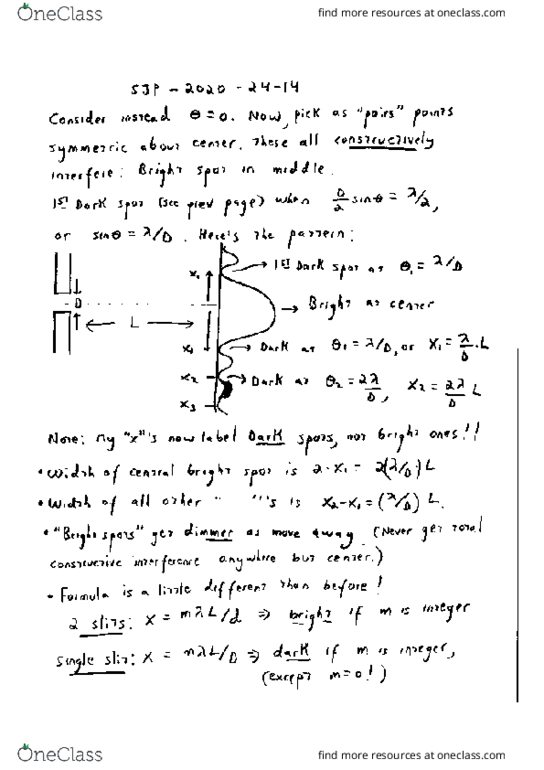 OneClass
find more resources at oneclass.com
SJP - 2020 - 24-14
Consider instead θ=0. Now, pick as "pairs" points
symmetric about center. These all constructively
interfere: Bright spot in middle.
1st Dark spot (see prev page) when D/2 sinθ = λ/2,
or sinθ = λ/D. Here's the pattern:
x₁
1st Dark spot at θ₁ = λ/D
D
Bright at center
L
x₁
Dark at θ₁ = λ/D, or x₁ = λ/D · L
x₂
Dark at θ₂ = 2λ/D, x₂ = 2λ/D L
x₃
Note: my "x"'s now label Dark spots, not bright ones!!
• Width of central bright spot is 2·x₁ = 2(λ/D)L
• Width of all other " "'s is x₂-x₁ = (λ/D) L.
• "Bright spots" get dimmer as move away. (Never get total
constructive interference anywhere but center.)
• Formula is a little different than before!
2 slits: x = mλL/d ⇒ bright if m is integer
Single slit: x = mλL/D ⇒ dark if m is integer,
(except m=0!)
OneClass
find more resources at oneclass.com